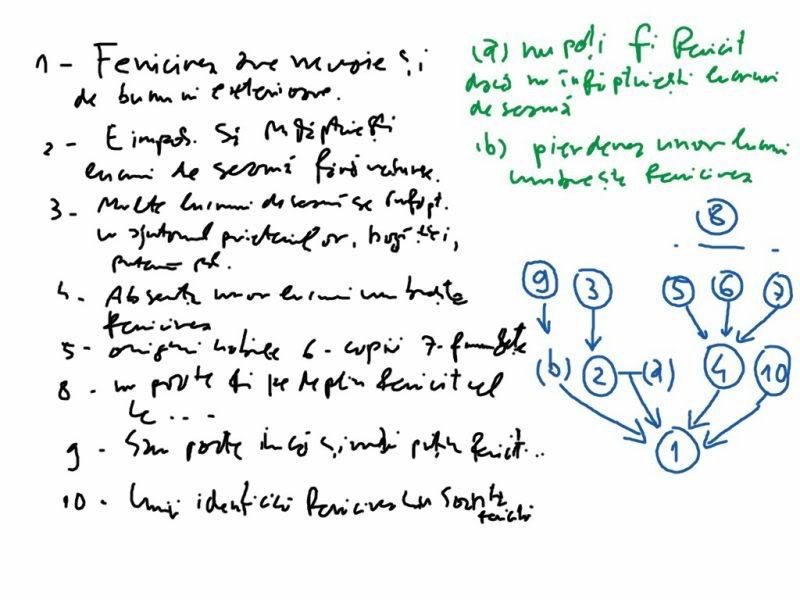 1 - Fericirea are nevoie și
de bunuri exterioare.
2 - E impos. să înfăptuiești
lucruri de seamă fără resurse.
3 - Multe lucruri de seamă se înfăpt.
cu ajutorul prietenilor, bogăției,
4 - Absența unor lucruri umbrește
fericirea
5 - origini nobile 6 - copii 7 - frumusețe
8 - nu poate fi pe deplin fericit cel
...
9 - Sau poate încă și mai puțin fericit...
10 - Unii identifică fericirea cu soarta
(a) nu poți fi fericit
dacă nu înfăptuiești lucruri
de seamă
(b) pierderea unor lucruri
umbrește fericirea
8
9 3 5 6 7
(b) 2 (a) 4 10
1